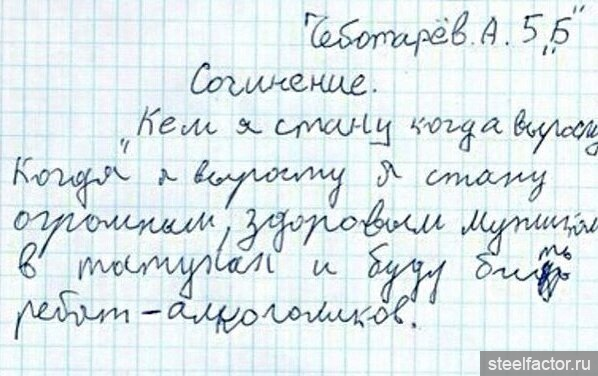 Чеботарёв. А. 5 „Б"
Сочинение.
„Кем я стану когда вырасту
Когда" я вырасту я стану
огромным, здоровым мужиком
в татухах и буду бить
ребят-алкоголиков.
steelfactor.ru